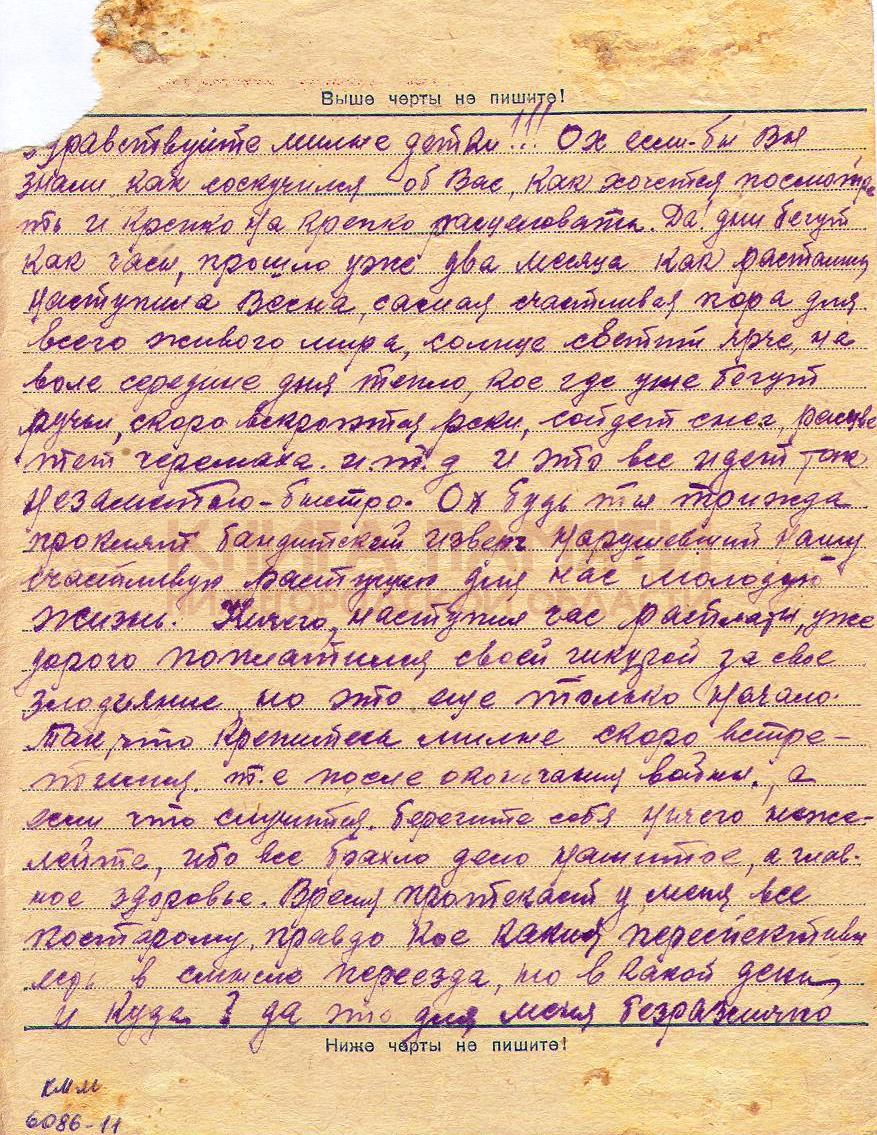 Выше черты не пишите!
здравствуйте милые детки!!! Ох если-бы Вы
знали, как соскучился об Вас, как хочется посмотре
ть и крепко на крепко расцеловать. Да дни бегут
как часы, прошло уже два месяца как расстались
наступила Весна, самая счастливая пора для
всего живого мира, солнце светит ярче, на
воле середине дня тепло, кое где уже бегут
ручьи, скоро вскроются реки, сойдет снег, расцве
тет черемаха. и т.д и это все идет так
незаметно-быстро. Ох будь ты трижда
проклят бандитской изверг нарушевший нашу
счастливую растущию для нас молодую
КНИГА ПАМЯТИ
НИЖЕГОРОДСКОЙ ОБЛАСТИ
жизнь. Ничего, наступил час расплаты, уже
дорого поплатился своей шкурой за свое
злодияние, но это еще только начало.
Так, что крепитесь милые скоро встре-
тимся. т.е после окончания войны., а
если что случится. берегите себя ничего нежа-
лейте, ибо все брахло дело нажитое, а глав-
ное здоровье. Время протекает у меня все
постарому, правдо кое какия переспективы
есть в смысле переезда, но в какой день
и куда? да это для меня безразлично
Ниже черты не пишите!
кмм
6086-11